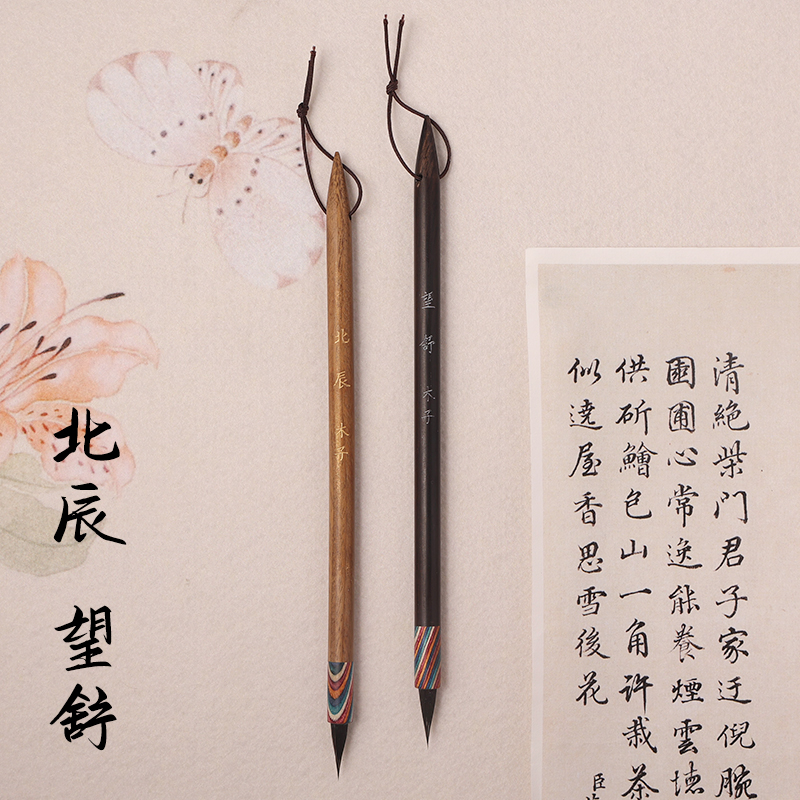 北辰
望舒
北辰 木子
望舒 木子
清絶柴門君子家迂倪腕
圃心常逸能養煙雲
供斫鱠包山一角許栽茶
似遶屋香思雪後花
臣